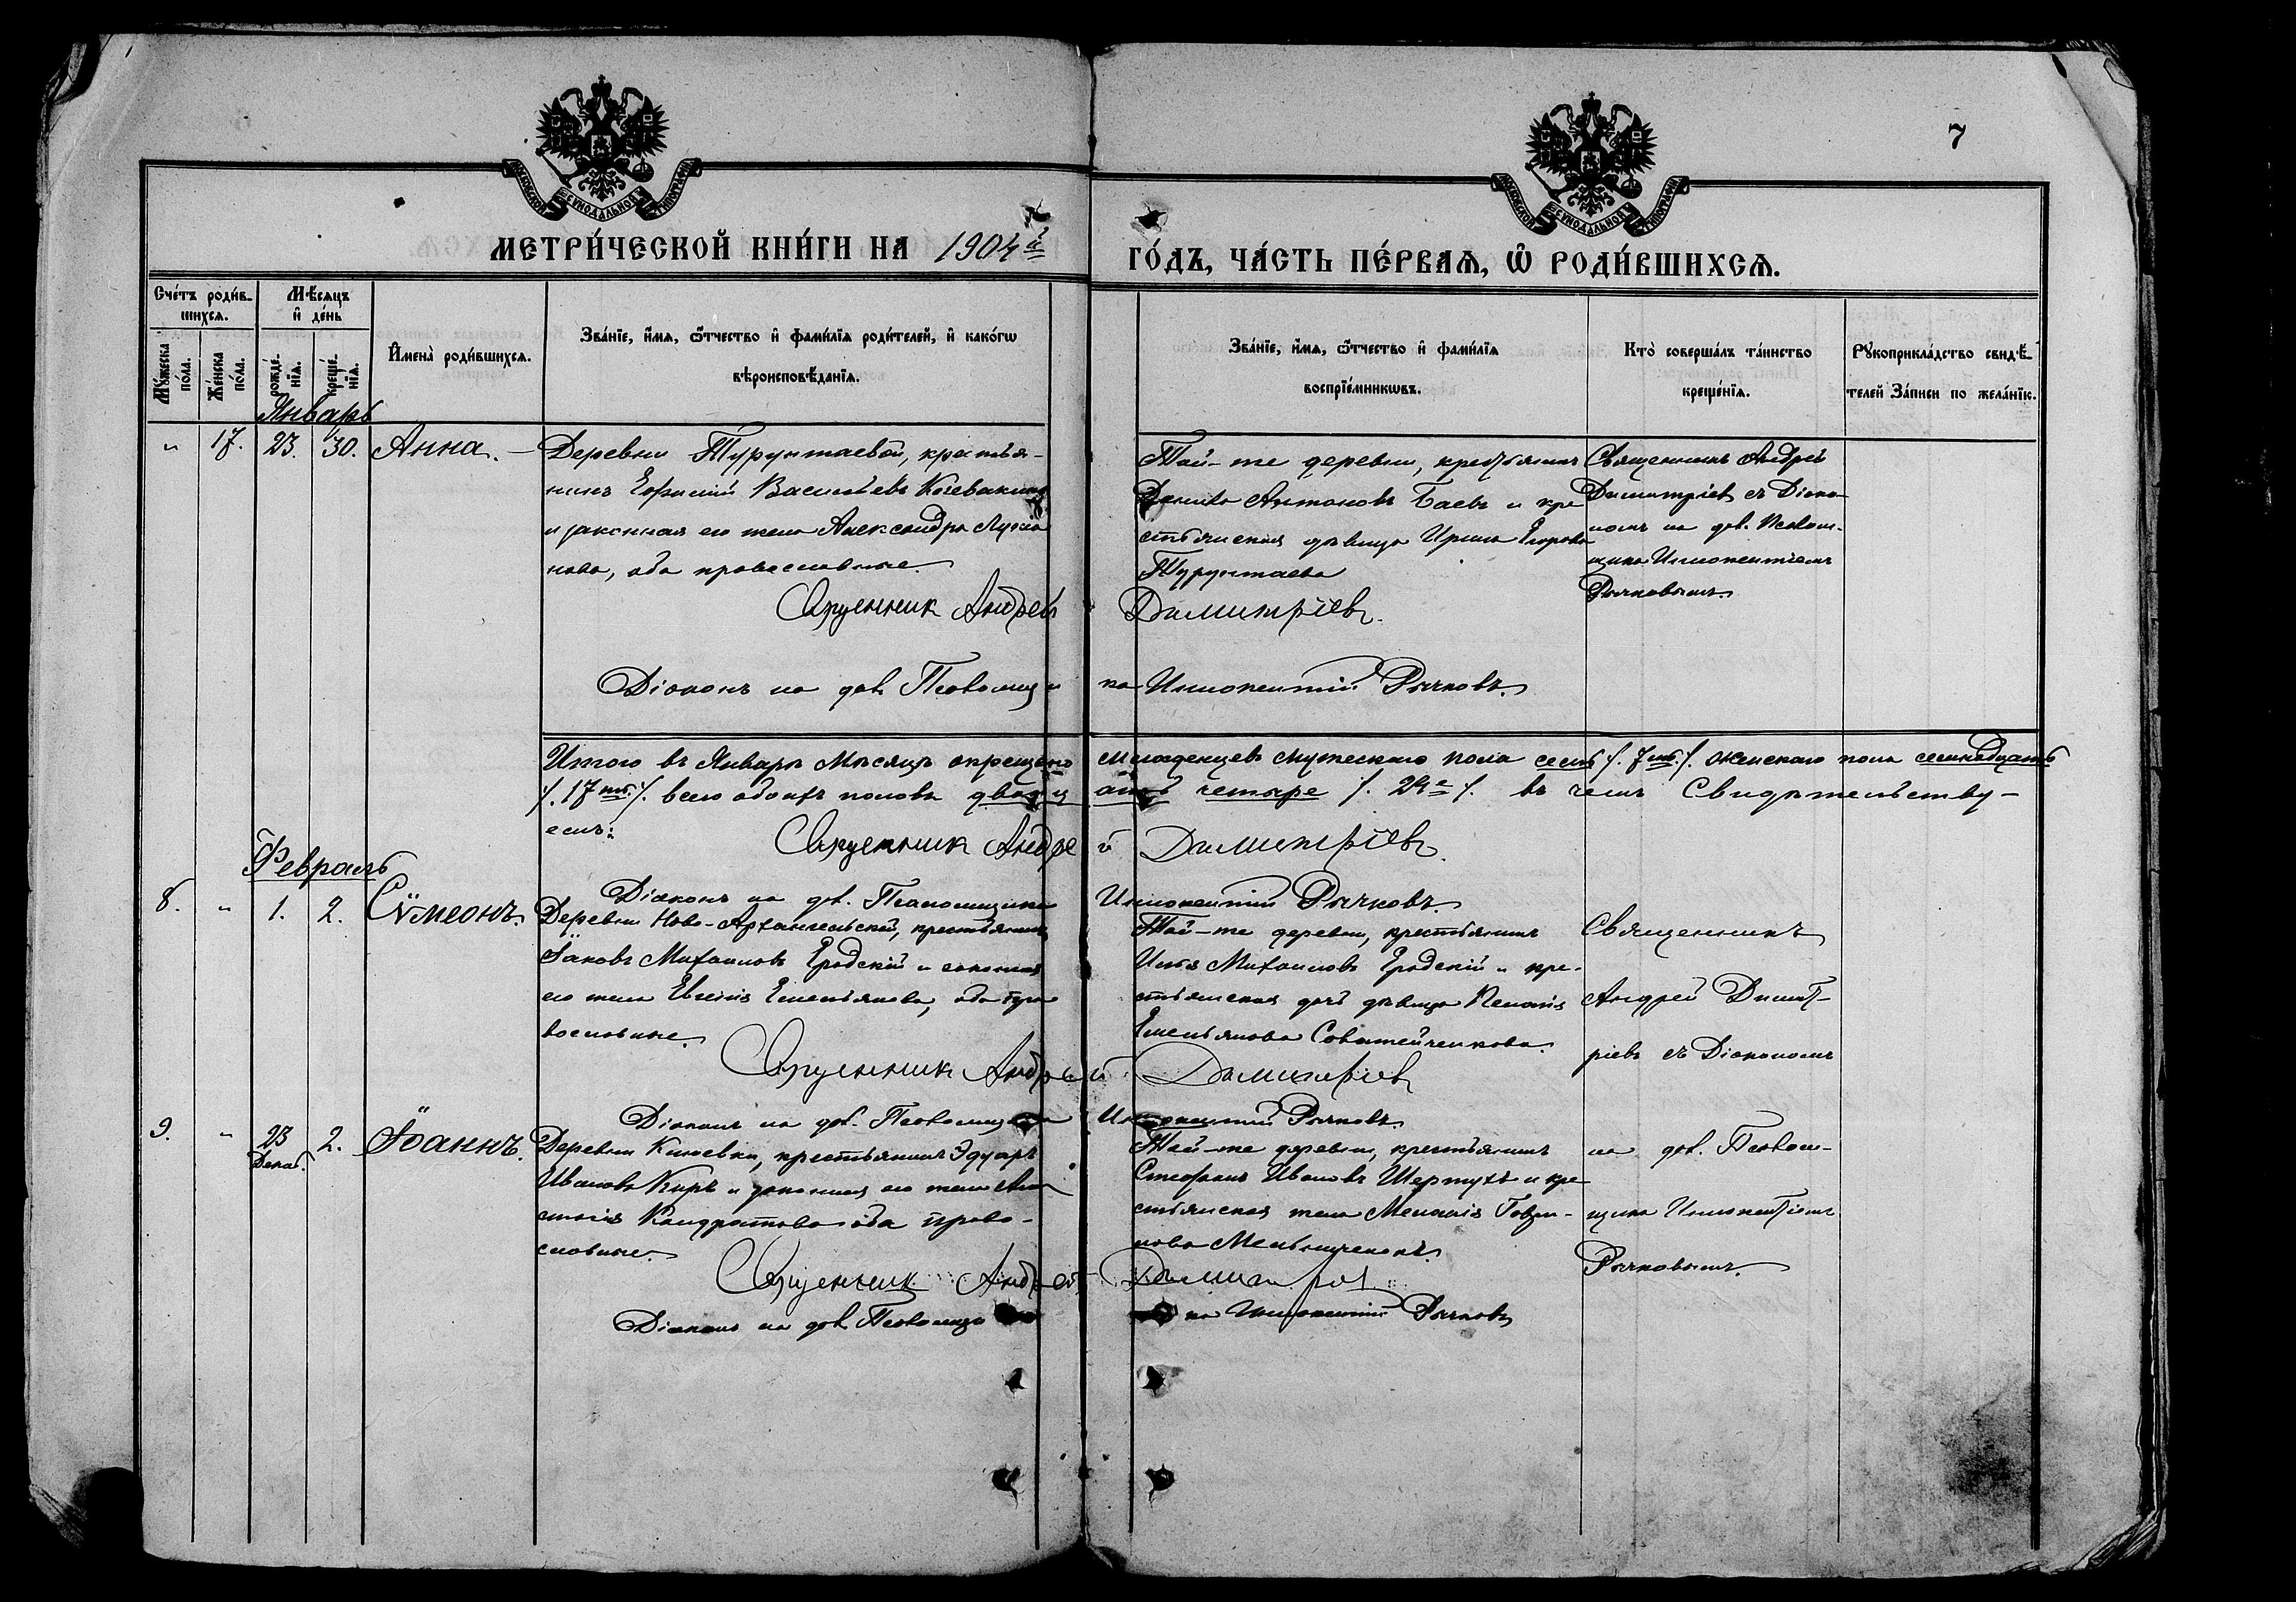 7
МОСКОВСКОЙ СУНОДАЛЬНОЙ ТИПОГРАФІИ
МОСКОВСКОЙ СУНОДАЛЬНОЙ ТИПОГРАФІИ
МЕТРИ́ЧЕСКОЙ КНИ́ГИ НА 1904й
ГО́ДЪ, ЧА́СТЬ ПЕ́РВАѦ, Ѿ РОДИ́ВШИХСѦ.
Сче́тъ роди́в-
шихсѧ.
Мѣ́сѧцъ
и҆ де́нь
Мꙋ́жеска
по́ла.
Же́нска
по́ла.
рожде́-
нїѧ.
креще́-
нїѧ.
И҆мена̀ роди́вшихсѧ.
Зва́нїе, и҆́мѧ, ѻ҆́тчество и҆ фами́лїѧ роди́телей, и҆ како́гѡ
вѣроисповѣ́данїѧ.
Зва́нїе, и҆́мѧ, ѻ҆́тчество и҆ фами́лїѧ
воспрїе́мникѡвъ.
Кто̀ соверша́лъ та́инство
креще́нїѧ.
Рꙋкоприкла́дство свидѣ́-
телей за́писи по жела́нїю.
Январь
" 17. 23. 30. Анна.
Деревни Турунтаевой, крестья-
нинъ Ефимій Васильевъ
и законная его жена Александра Лукіа
нова, оба православные.
Той-же деревни, крестьянинъ
Данило Антоновъ Баевъ и кре
стьянская дѣвица Ирина Егорова
Турунтаева
Священникъ Андрей
Димитріевъ съ Діако-
номъ на дол. Псалом-
щика Иннокентіемъ
Рычковымъ.
Священник Андрей Димитріевъ.
Діаконъ на дол. Псаломщика Иннокентій Рычковъ.
Итого въ Январѣ Мѣсяцѣ окрещено младенцевъ мужескаго пола семь /. 7мь. /. женскаго пола семнадцать
/. 17ть. /. всего обоихъ половъ двадцать четыре /. 24е /. въ чемъ Свидѣтельству-
емъ:
Священник Андрей Димитріевъ.
Діаконъ на дол. Псаломщика Иннокентій Рычковъ.
Февраль
8. " 1. 2. Сѵмеонъ.
Деревни Ново-Архангельской, крестьянинъ
Іаковъ Михаиловъ Гродскій и законная
его жена Евгенія Емельянова, оба пра
вославные.
Той-же деревни, крестьянинъ
Илья Михаиловъ Гродскій и кре-
стьянская дочь дѣвица
Емельянова
Священникъ
Андрей Димит-
ріевъ съ Діакономъ
Священник Андрей Димитріевъ
Діаконъ на дол. Псаломщика Иннокентій Рычковъ.
9. " 23 Декаб. 2. Іоаннъ.
Деревни Кіневки, крестьянинъ Эдуаръ
Ивановъ Киръ и законная его жена Ана
стасія Кондратова оба право-
славные.
Той-же деревни, крестьянинъ
Стефанъ Ивановъ и кре
стьянская жена Меланія
на дол. Псалом-
щика Иннокентіемъ
Рычковымъ.
Священник Андрей Димитріев
Діаконъ на дол. Псаломщика Иннокентій Рычковъ